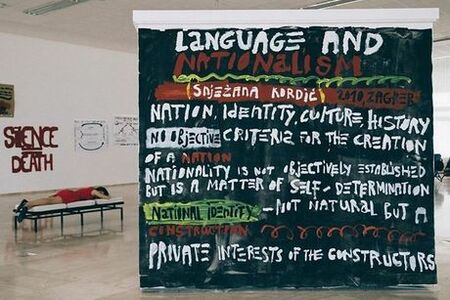 LANGUAGE AND
NATIONALISM
(SNJEŽANA KORDIĆ) 2010, ZAGREB
NATION, IDENTITY, CULTURE, HISTORY
NO OBJECTIVE CRITERIA FOR THE CREATION
OF A NATION
NATIONALITY IS NOT OBJECTIVELY ESTABLISHED
BUT IS A MATTER OF SELF-DETERMINATION
NATIONAL IDENTITY – NOT NATURAL BUT A
CONSTRUCTION
PRIVATE INTERESTS OF THE CONSTRUCTORS
SILENCE
=
DEATH